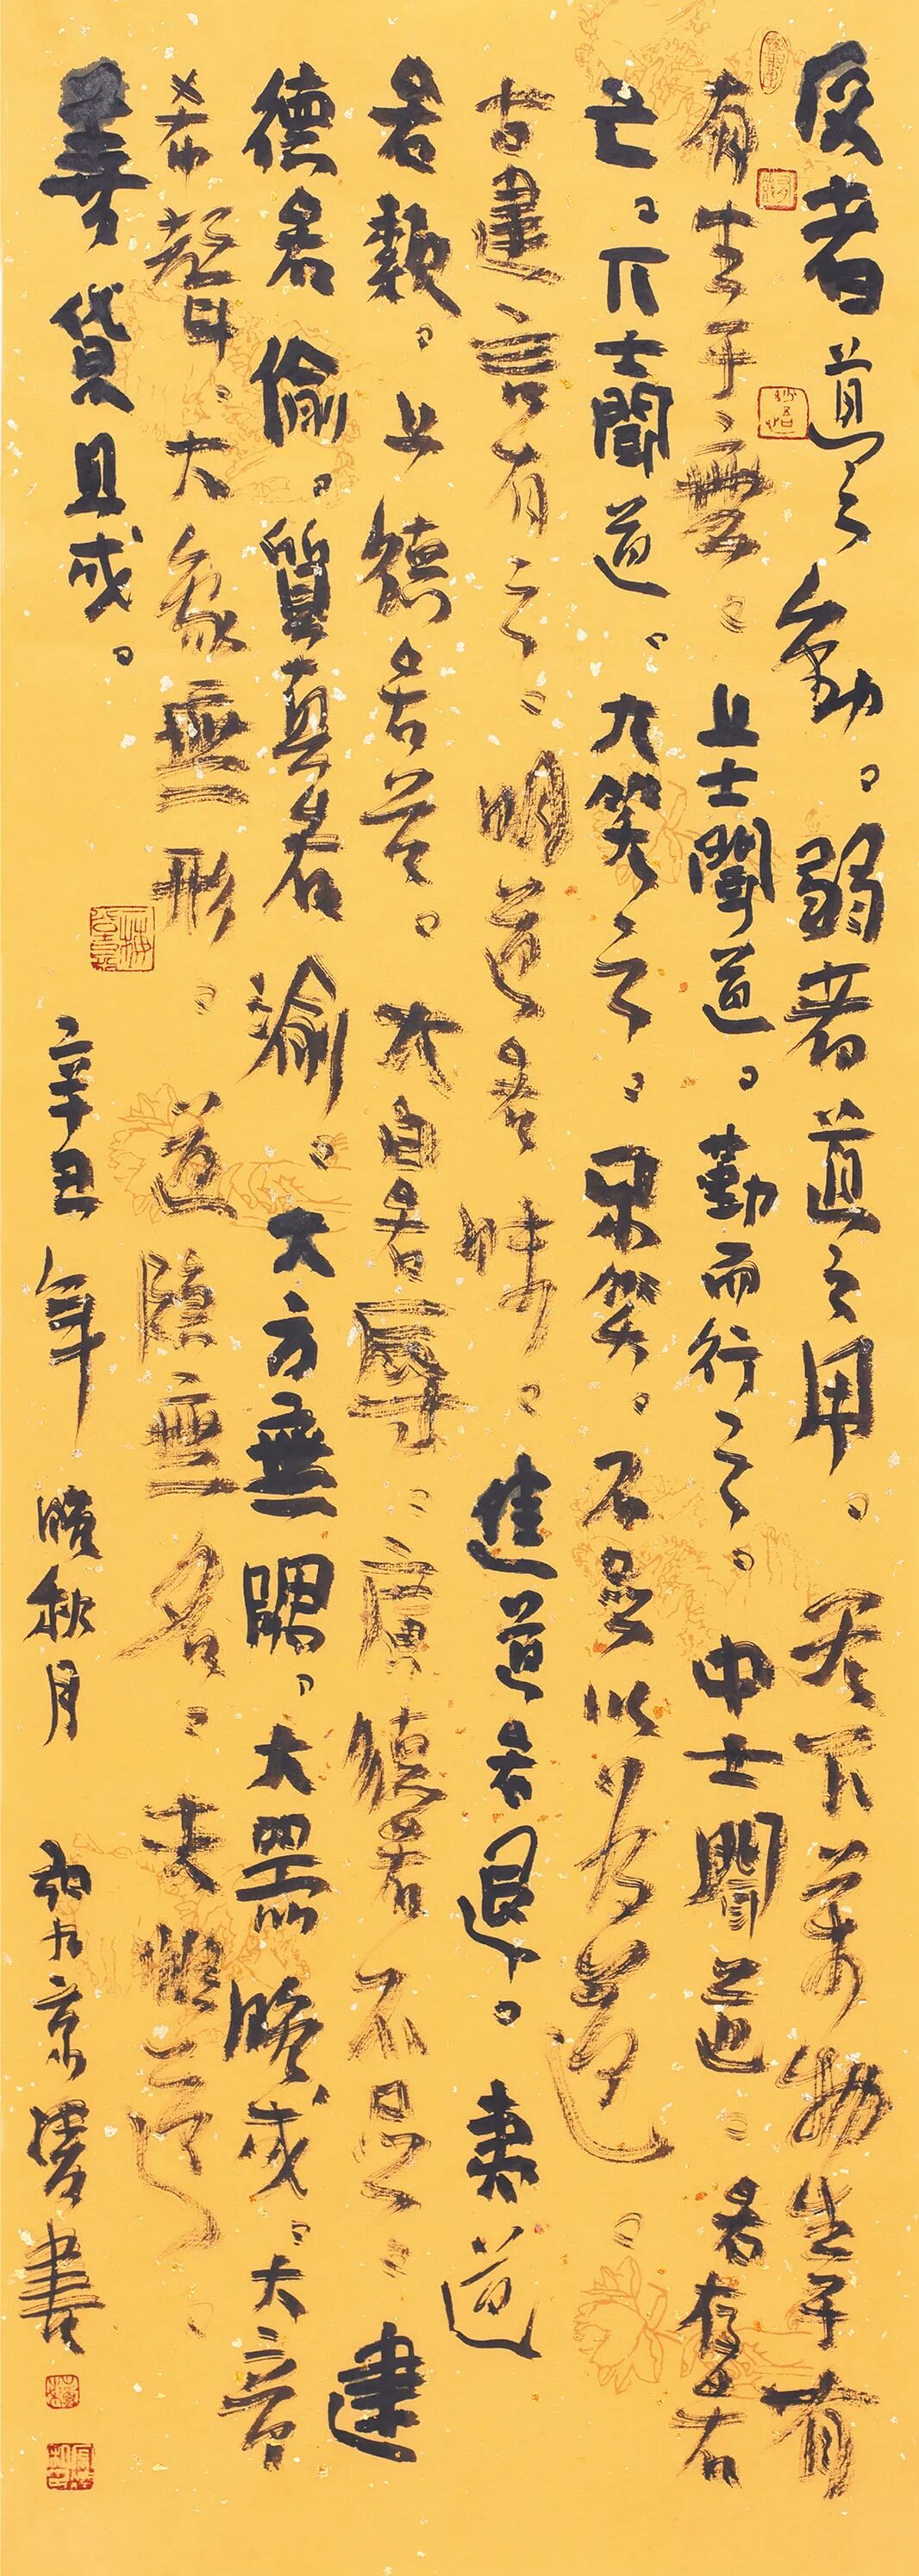 反者道之動。弱者道之用。天下萬物生于有
有生于無。上士聞道。勤而行之。中士聞道。若存若
亡。下士聞道。大笑之。不笑。不足以為道。
古建言有之。明道若昧。進道若退。夷道
若纇。上德若谷。大白若辱。廣德若不足。建
德若偷。質真若渝。大方無隅。大器晚成。大音
希聲。大象無形。道隱無名。夫惟道。
善貸且成。
辛丑年 秋月 京 書